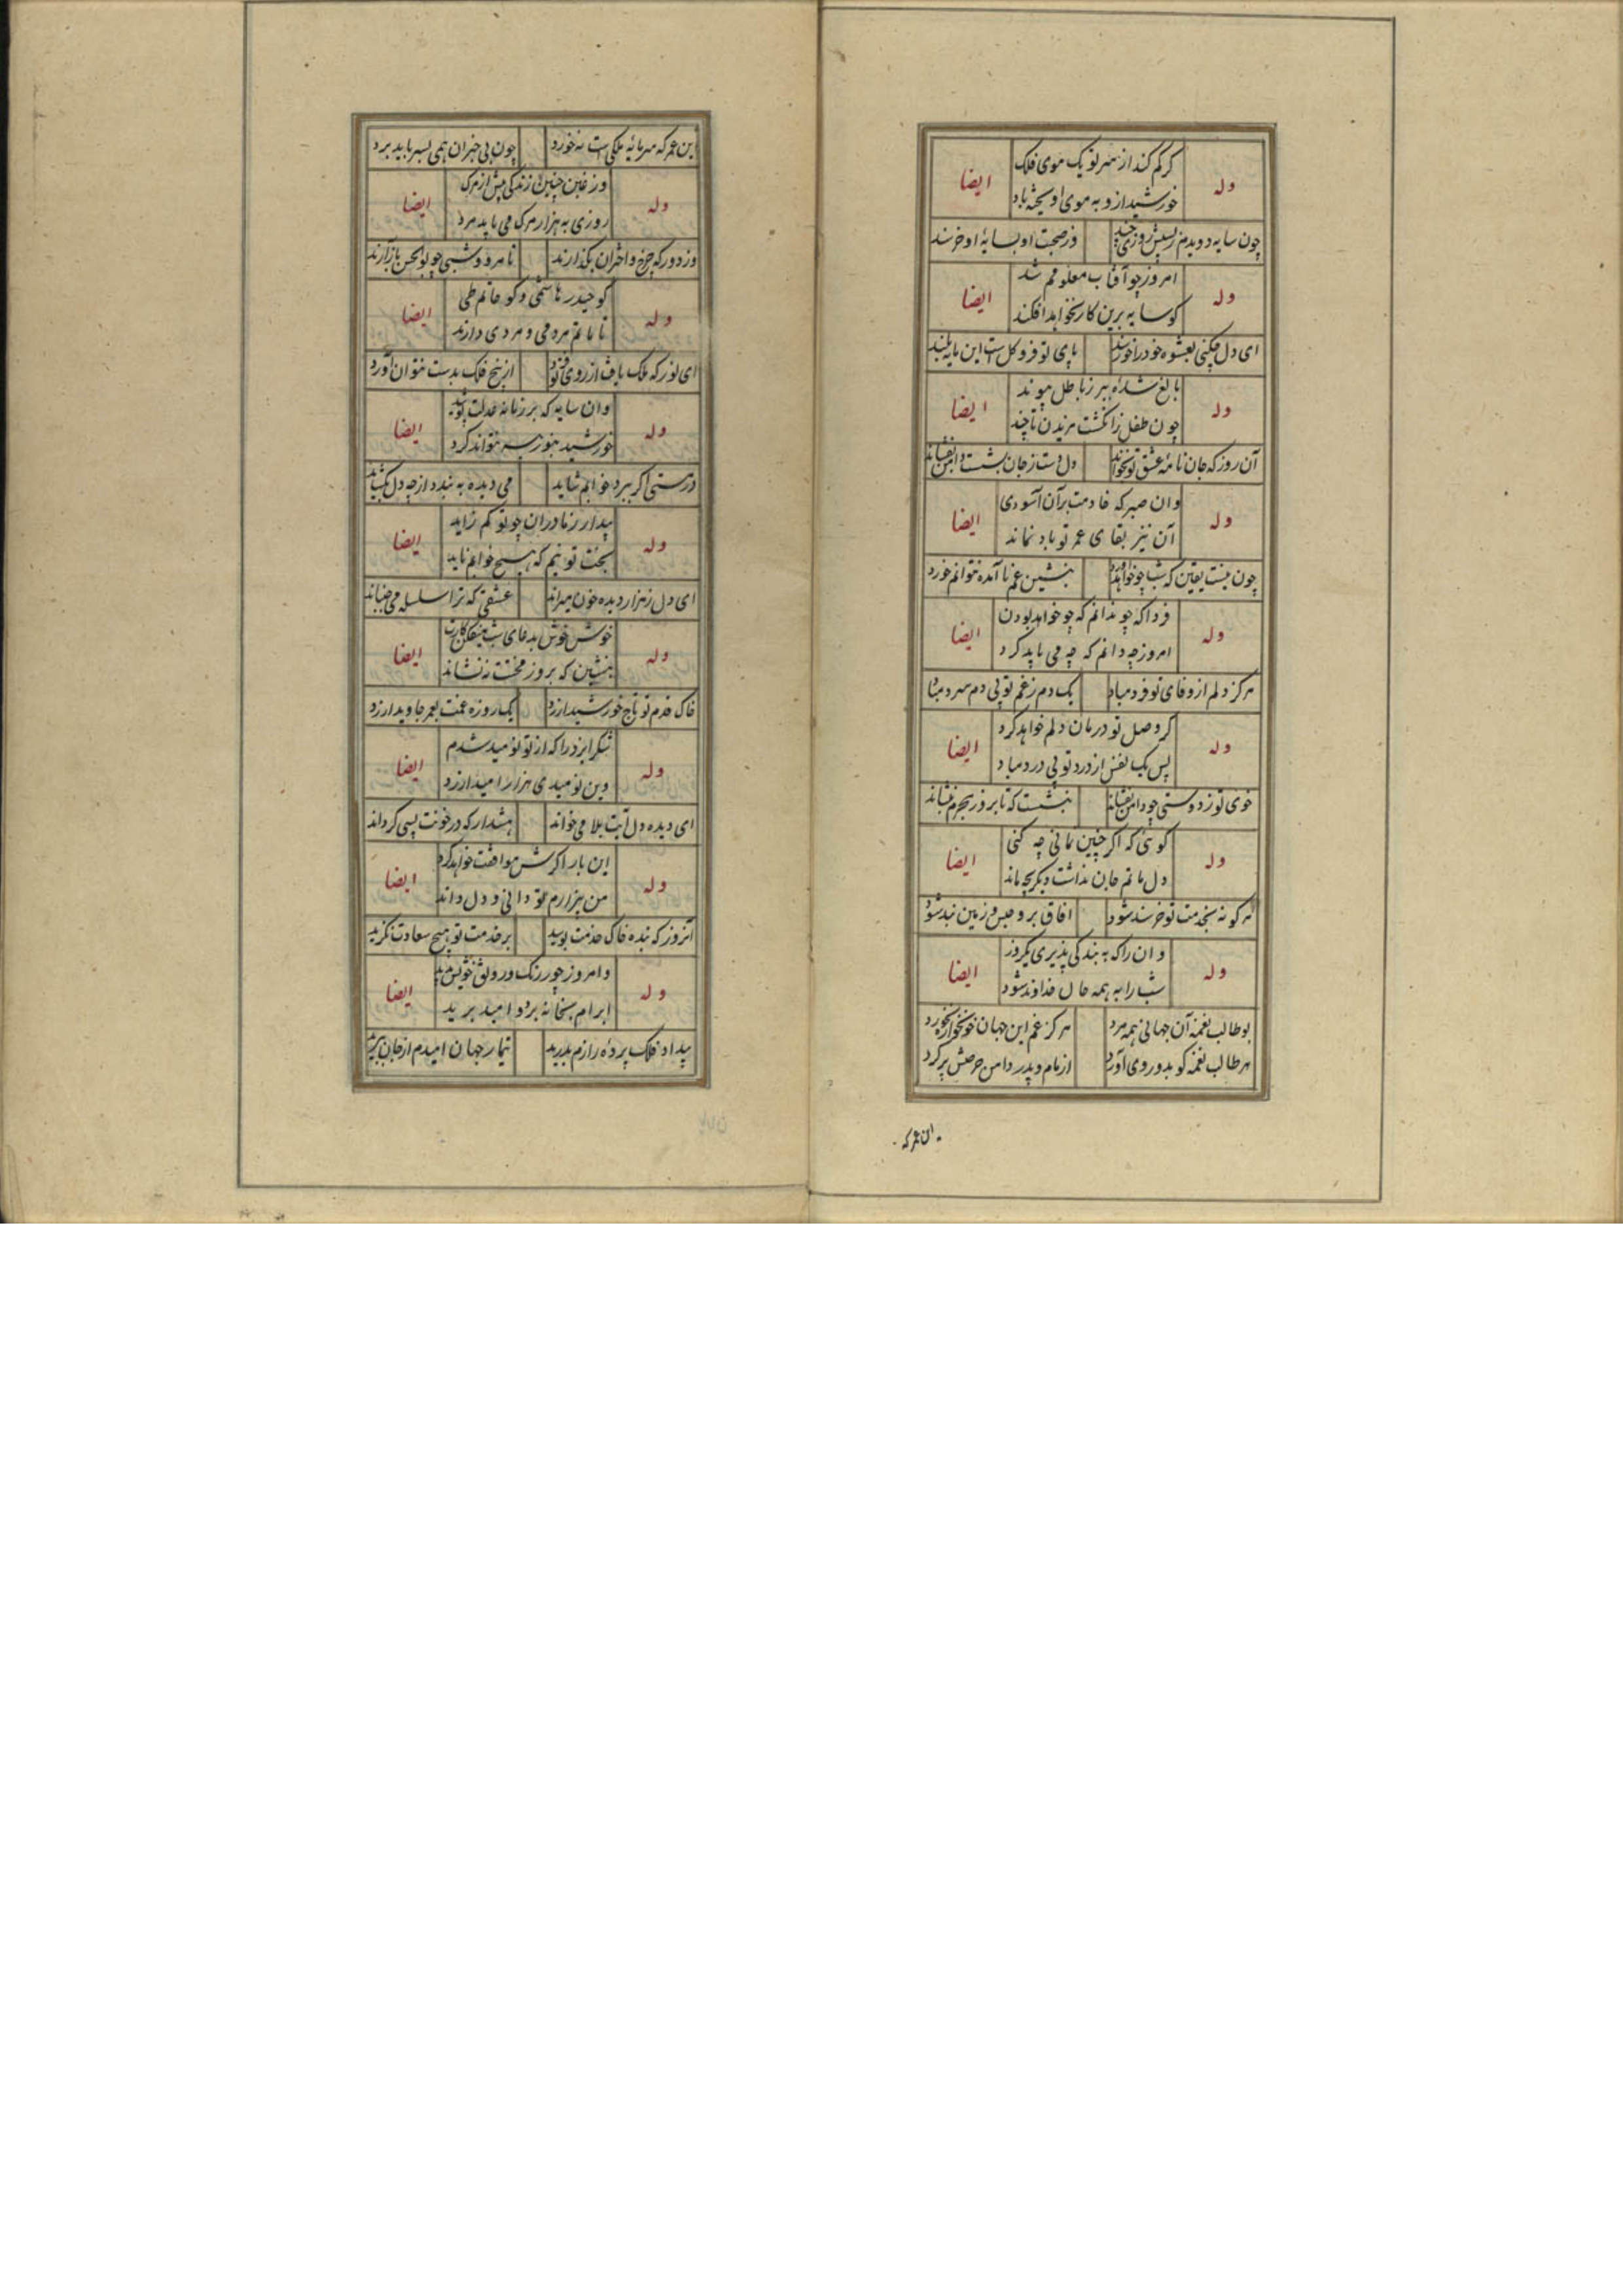 وله گر کم کند از سر تو یک موی فلک ایضا
خورشید ازو به موی آویخته باد
چون سایه دویدم ز پسش روزی چند وز صحبت او بسایه او خرسند
وله امروز چو آفتاب معلومم شد ایضا
کو سایه برین کار نخواهد افکند
ای دل چکنی بعشوه خود را خرسند پای تو فرو گل است این مایه بلند
وله بالغ شده ببر ز باطل پیوند ایضا
چون طفل ز انگشت مزیدن تا چند
آن روز که جان نامه عشق تو بخواند دل دست ز جان بشست و دامن بفشاند
وله وان صبر که خادمت بر آن آسودی ایضا
آن نیز بقای عمر تو باد نماند
چون نیست یقین که شب چو خواهد بنشین غم نا آمده نتوانم خورد
وله فردا که چو ندانم که چو خواهد بودن ایضا
امروز چه دانم که چه می باید کرد
هرگز دلم از وفای تو فرد مباد یک دم ز غم تو بی دم سرد مباد
وله گر وصل تو درمان دلم خواهد کرد ایضا
پس یک نفس از درد تو بی درد مباد
خوی تو ز دوستی چو دامن بفشاند بنشست که تا بروز هجرم بنشاند
وله گوئی که اگر چنین بمانی چه کنی ایضا
دل ماتم جان نداشت دیگر چه ماند
نه گونه بخدمت تو خرسند شود افاق برو حبس و زمین بند شود
وله وان را که به بندگی پذیری یکروز ایضا
شب را به همه حال خداوند شود
بوطالب نغمه آن جهانی همه مرد هرگز غم این جهان خونخوار نخورد
هر طالب نغمه کو بدو روی آورد از نام و پدر دامن حرصش پر کرد
این عمر که
این عمر که سرمایه ملکی است نه خورد چون بی خبران همی بسر باید برد
وله وز غبن چنین زندگی پیش از مرگ ایضا
روزی به هزار مرگ می باید مرد
وز دور که چرخ و اختران بگذارند تا مرد وشبی چو بوالحسن باز آرند
وله کو حیدر هاشمی و کو حاتم طی ایضا
تا ماتم مردمی و مردی دارند
ای نور که ملک یافت از روی تو از پنج فلک بدست نتوان آورد
وله وان سایه که بر زمانه عدلت ایضا
خورشید بنور سه نتواند کرد
در مستی اگر ببرد خوابم شاید می دیده به بندد از چه دل بگشاید
وله بیدار ز مادران چو تو کم زاید ایضا
بخت تو نیم که هیچ خوابم ناید
ای دل ز هزار دیده خون میراند عشقی که ترا سلسله می جنباند
وله خوش خوش بدعای شب میفکن کارت ایضا
بنشین که بروز محنتت ننشاند
خاک قدم تو تاج خورشید ارزد یک روزه غمت بعمر جاوید ارزد
وله شکر ایزد را که از تو نومید شدم ایضا
وین نومیدی هزار امید ارزد
ای دیده دل آیت بلا می خواند هشدار که در خونت پسی گرداند
وله این بار اگرش موافقت خواهد کرد ایضا
من بیزارم تو دانی و دل داند
آنروز که بنده خاک خدمت بوسید بر خدمت تو هیچ سعادت نگزید
وله وامروز چو رنگ و رونق خویش بدید ایضا
ابرام بخانه برد و امید برید
بیداد فلک پرده رازم بدرید تیمار جهان امیدم از جان ببرید